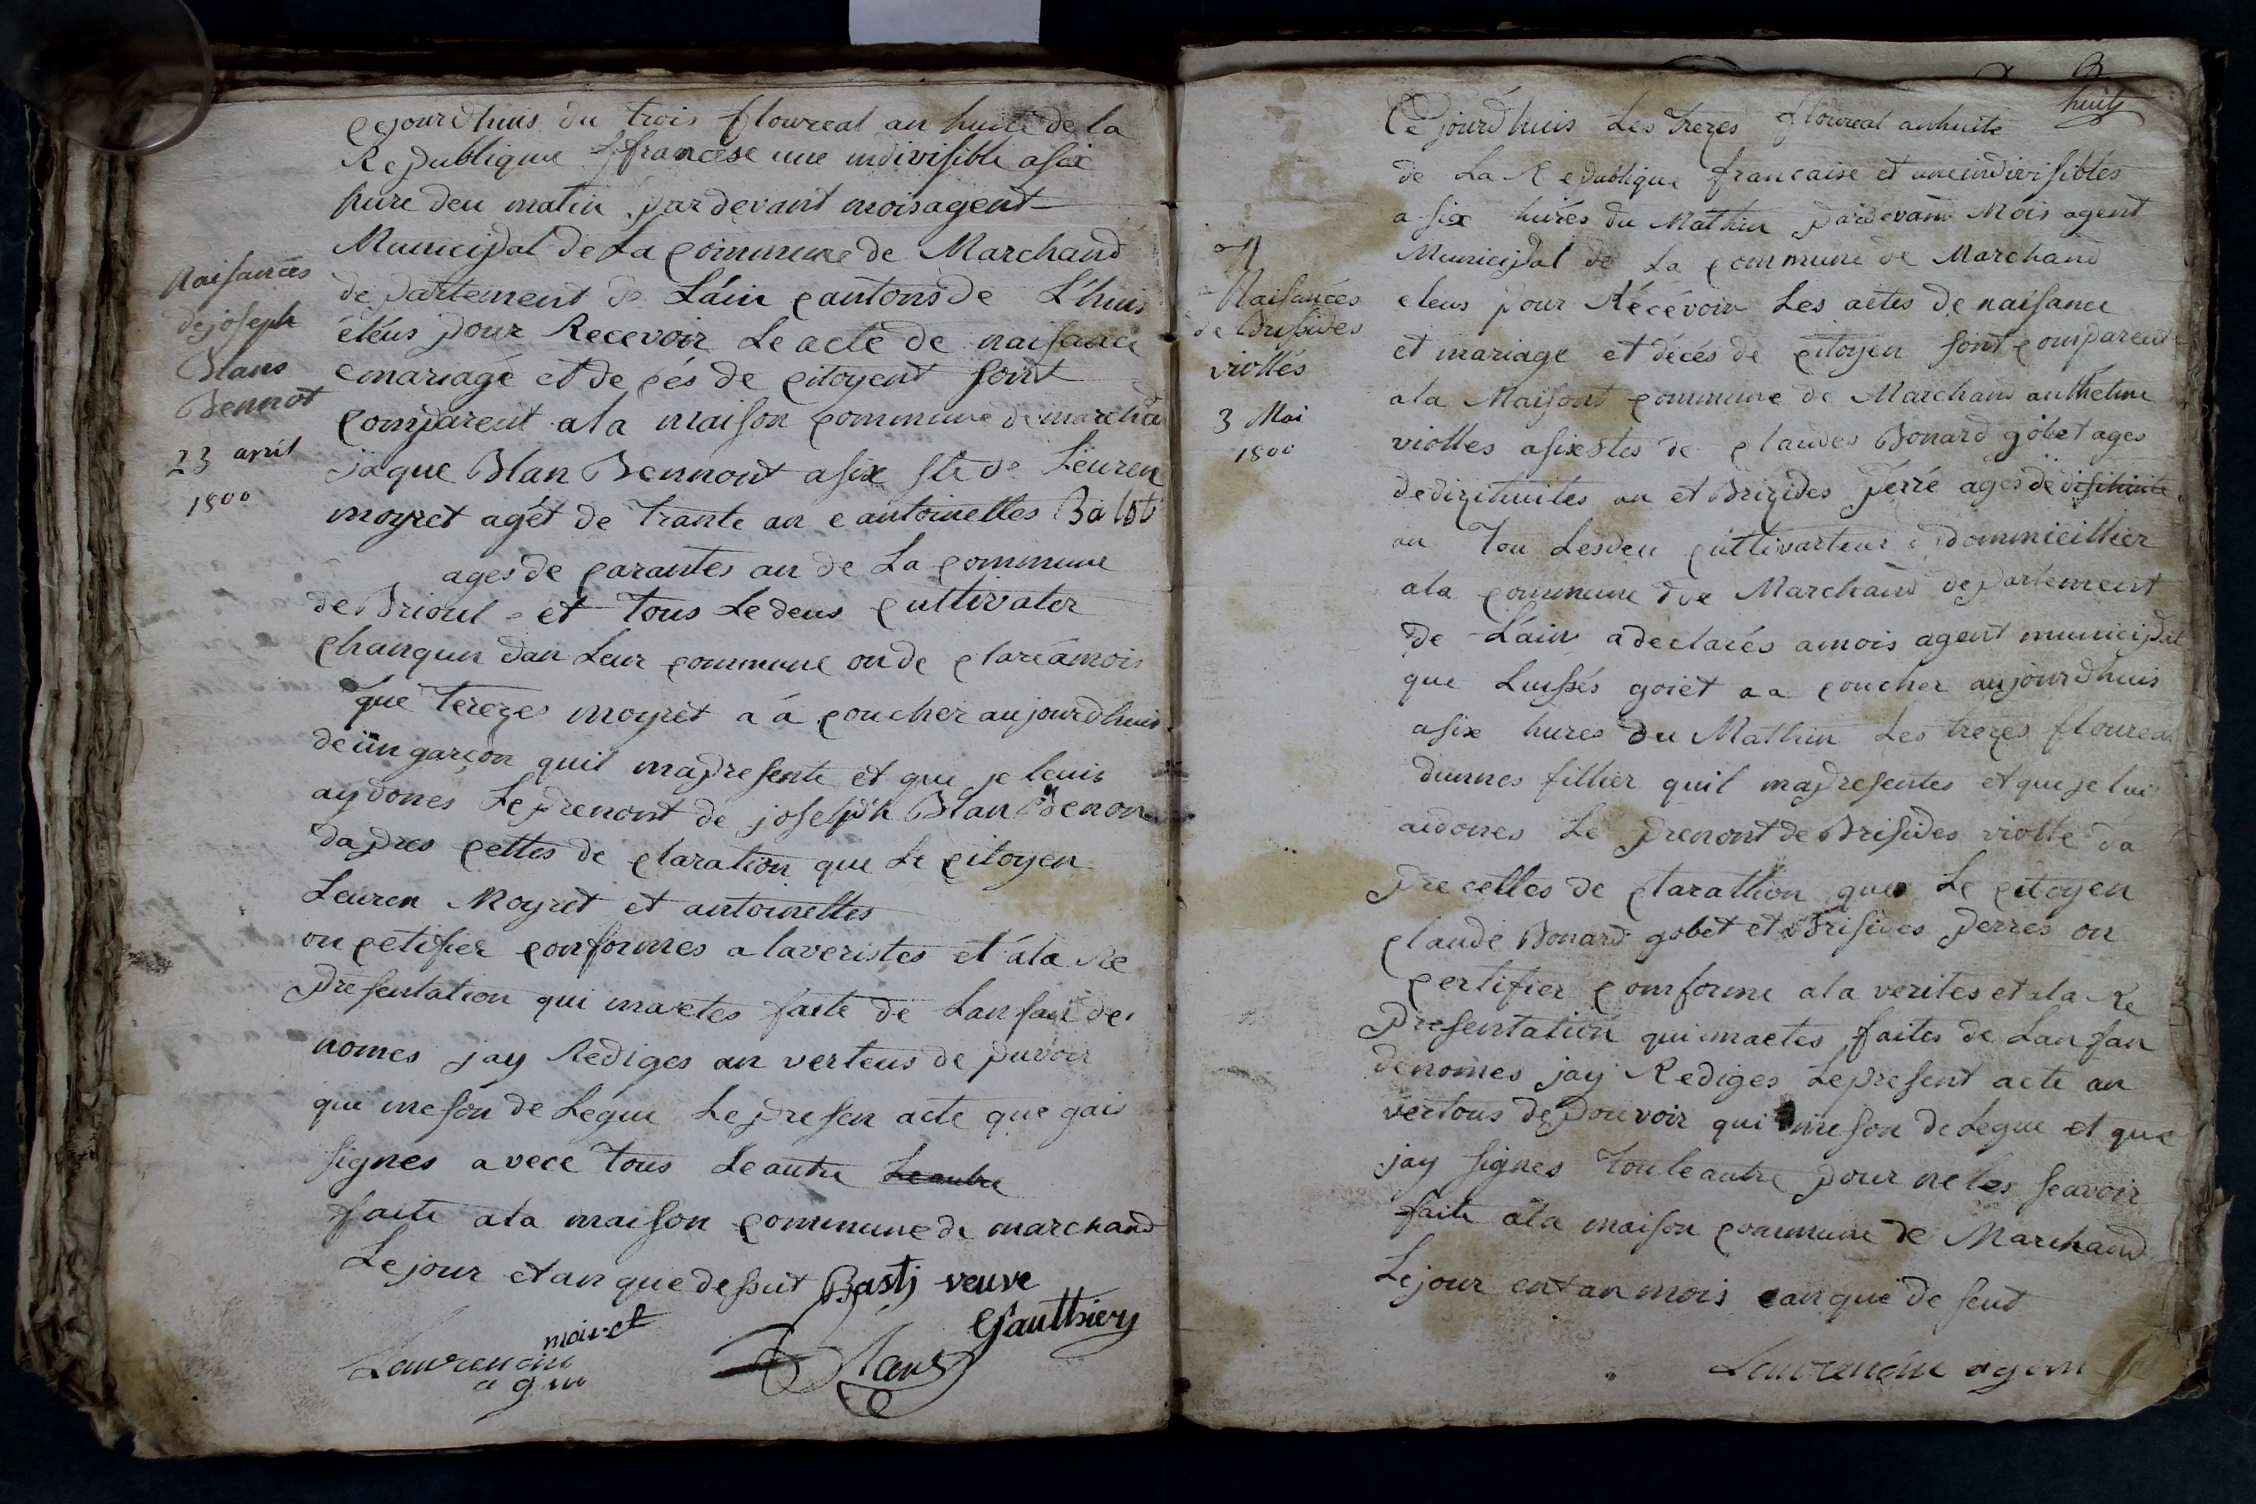 Naisances
de joseph
Blans
Bennot
23 avril
1800
Cejourdhuis du trois floureal an huite de la
Republique ffrancese une indivisible a six
hure deu matin pardevant mois agent
Municipal de La Commune de Marchand
departement de Láin cantons de L'huis
éléus pour Recevoir Le acte de naisance
e mariage et de cés de citoyent sont
comparent a la maison commune de marchan
jaque Blan Bennont asix ste de Leuren
moyret agét de trante an e antoinettes Balot
ages de carantes an de La commune
de Briord et tous Le deus cultivater
chanqun dan Leur commune on de claré a mois
que terezes moyret a á coucher aujourdhuis
de un garçon quil mapresente et que je leuis
ay dones Le prenont de joseph Blan Benon
dapres cettes de claration que Le citoyen
Leuren Moyret et antoinettes
on cetifier conformes a laveristes et á la Re
presentation qui maetes faite de Lanfan de
nomes jay Rediges an verteus de puvoir
qui me son de Legue Le presen acte que gais
signes avece tous Le autre Le autre
faite ala maison commune de marchand
Le jour et an que de suit Basti veuve
Gauthiery
moiret
Laurencin
agen
Blans
huity
N
Naisances
de Brisides
viottes
3 Mai
1800
Ce jourdhuis Les trezes floureal anhuite
de La Republique francaise et une indivisibles
a six hures du Mathin pardevant Mois agent
Municipal de La Commune de Marchand
eleus pour Récévoir Les actes de naisance
et mariage et décés de citoyen sont comparent
ala Maisont commune de Marchand anthelme
viottes asixstes de claudes Bonard gobet ages
de dizithuites an et Brizides Perré ages de disihuite
an tou Lesdeu cultivarteur dommicillier
ala commune due Marchand departement
de Láin a declarés amois agent municipal
que Luissés goiet a a coucher aujourdhuis
asix hures du Mathin Les trezes floureal
dunnes fillier quil mapresentes et que je lui
aidones Le prenont de Brisides viotte da
pre celles de clarathion que Le citoyen
claude Bonard gobet et Brisides perres on
certifier comforme ala verites et ala Re
presentation qui maetes faites de Lanfan
denomes jay Rediges Lepresent acte an
vertous de pouvoir qui me son de Legue et que
jay signes tou le autre pour ne les seavoir
faite ala maison commune de Marchand
Le jour ent an mois ean que de seut
Laurencin agent